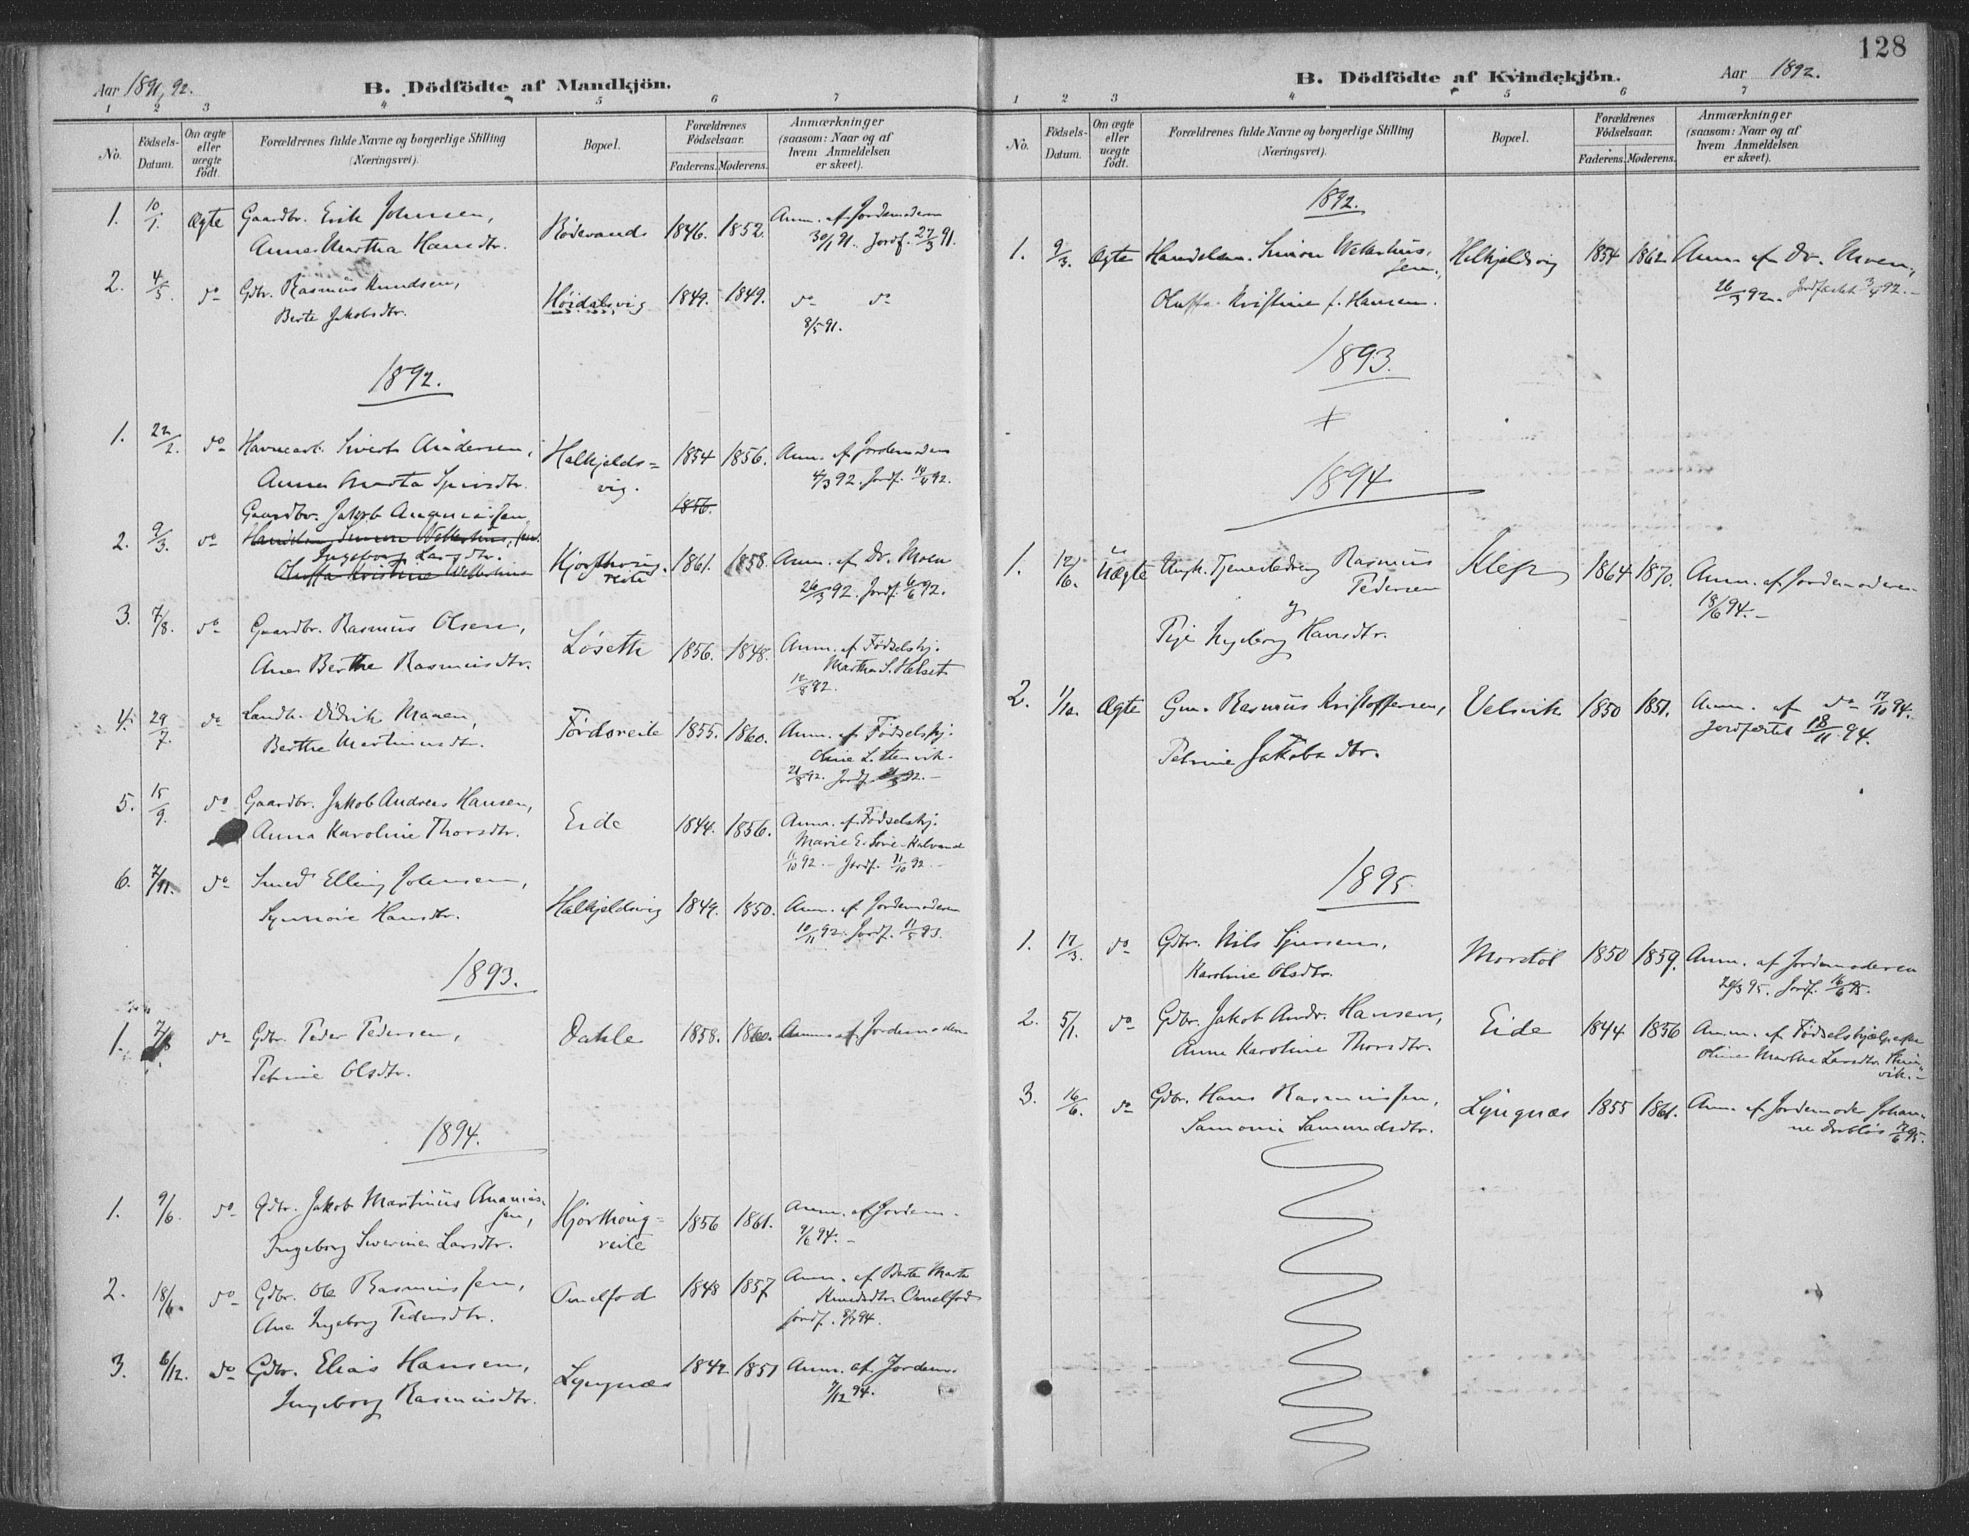 Aar 1891, 92.
B. Dödfödte af Mandkjön.
1 2 3 4 5 6 7
No.
Födsels-Datum.
Om ægte eller uægte födt.
Forældrenes fulde Navne og borgerlige Stilling
(Næringsvei).
Bopæl.
Forældrenes Födselsaar.
Faderens. Moderens.
Anmærkninger
(saasom: Naar og af
hvem Anmeldelsen
er skeet).
1. 10/1. Ægte Gaardbr. Erik Johnsen, Rödevands 1846. 1852. Anm. af Jordemoderen
Anne Martha Hansdtr. 30/1 91. Jordf. 27/3 91.
2. 4/5. do Gdbr. Rasmus Knudsen, Höidalsvig 1849. 1849. do do
Berte Jakobsdtr. 8/5 91.
1892.
1. 22/2. do Havnearb. Sivert Andersen, Halkjelds= 1854 1856. Anm. af Jordemoderen
Anne Marta Sjursdtr. vig. 4/3 92. Jordf. 14/4 92.
Gaardbr. Jakob Ananiassen 1856.
2. 9/3. do Handelsm. Simon Welterhus, sen. Hjorthoug- 1861. 1858. Anm. af Dr. Moen
Ingeborg Larsdtr. reite
Oluffa Kristine Welterhus 26/3 92. Jordf. 6/6 92.
3. 7/8. do Gaardbr. Rasmus Olsen, Løseth 1856. 1848. Anm. af Födselshj.
Ane Berthe Rasmusdtr. Martha S. Helset
12/8 92.
4. 29/7. do Landh. Didrik Maaen, Fördsreite 1855. 1860. Anm. af Födselshj.
Berthe Martinusdtr. Oline L.
21/8 92. Jordf. 92. -
5. 15/9. do Gaardbr. Jakob Andreas Hansen, Eide 1844. 1856. Anm. af Födselshj.
Anna Karoline Thorsdtr. Marie E.
11/10 92. - Jordf. 11/10 92. -
6. 7/11. do Smed Elling Johnsen, Halkjeldsvig 1849. 1850. Anm. af Jordemoderen
Synnöve Hansdtr. 10/11 92. Jordf. 11/5 93.
1893.
1. do Gdbr. Peder Pedersen, Dahle 1858. 1860. Anm. af Jordemoderen
Petrine Olsdtr.
1894.
1. 9/6. do Gdbr. Jakob Martinus Ananias- Hjorthoug= 1856 1861. Anm. af Jordem. -
sen,
Ingeborg Severine Larsdtr. reite 9/6 94. -
2. 18/6. do Gdbr. Ole Rasmussen, Omelfod 1848 1857 Anm. af Berte Marte
Ane Ingeborg Pedersdtr. Knudsdtr. Omelfod
jordf. 8/7 94.
3. 6/12. do Gdbr. Elias Hansen, Lyngnæs 1842 1851 Anm. af Jordem.
Ingeborg Rasmusdtr. 7/12 94.
128
B. Dödfödte af Kvindekjön.
Aar 1892.
1 2 3 4 5 6 7
No.
Födsels-Datum.
Om ægte eller uægte födt.
Forældrenes fulde Navne og borgerlige Stilling
(Næringsvei).
Bopæl.
Forældrenes Födselsaar.
Faderens. Moderens.
Anmærkninger
(saasom: Naar og af
hvem Anmeldelsen
er skeet).
1892.
1. 9/3. Ægte Handelsm. Simon Welterhus, Halkjeldsvig 1854 1862 Anm. af Dr. Moen,
sen.,
Oluffa Kristine f. Hansen. 26/3 92. Jordfæstet 3/4 92. -
1893.
1894
1. 12/6. Uægte Ungk. Tjenestedreng Rasmus Klep 1864 1870. Anm. af Jordemoderen
Pedersen 18/6 94. -
og
Pige Ingeborg Hansdtr.
2. 1/10. Ægte Gm. Rasmus Kristoffersen, Velsvik 1850 1851. Anm. af do 17/10 94.
Petrine Jakobsdtr. Jordfæstet 18/11 94.
1895
1. 17/3. do Gdbr. Nils Sjursen, Morctöl 1850 1859. Anm. af Jordemoderen
Karoline Olsdtr. 20/3 95. Jordf. 16/6 95.
2. 5/1. do Gdbr. Jakob Andr. Hansen, Eide 1844 1856 Anm. af Födselshjælpersken
Anne Karoline Thorsdtr. Oline Martha Larsdtr.
vik. -
3. 16/6. do Gdbr. Hans Rasmussen, Lyngnæs 1855 1861. Anm. af Jordemoder Johan-
Samonia Samundsdtr. ne 17/6 95.